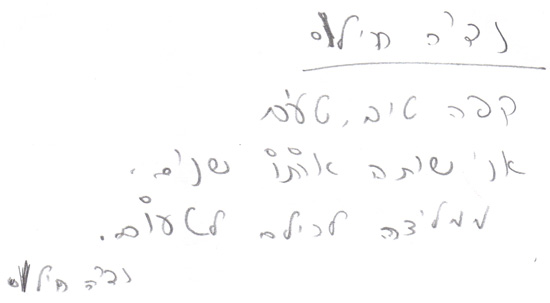 נד'ה חילו
קפה טיב, טעים
אני שותה אותו שנים.
ממליצה לכולם לטעום.
נד'ה חילו